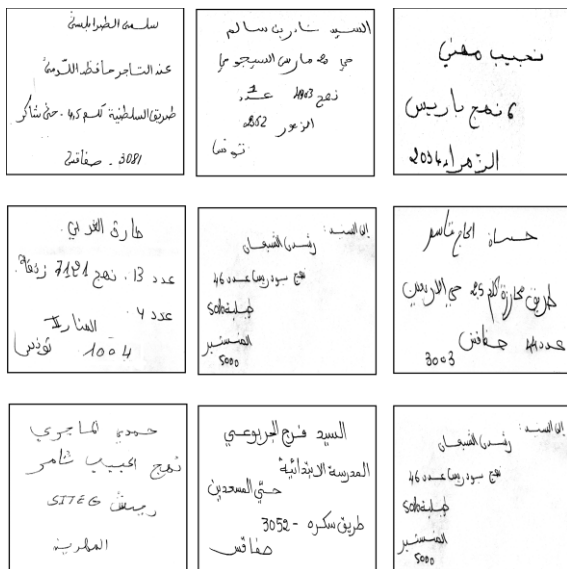 سلمى الطرابلسي
عند التاجر حافظ اللّومي
طريق السلطنية كلم 4,5 . حي شاكر
3081 . صفاقس
السيد بن سالم
حي 20 مارس السيجومي
نهج 4863 عدد 1
الزهور 2052
تونس
نجيب مهني
6 نهج باريس
الزهراء 2034
طارق الغربي
عدد 13 . نهج 7121 زنقة
عدد 4
المنار II
1004 تونس
إلى السيد :
رشدي الشبعان
نهج عدد 46
المنستير
5000
الحاج قاسم
طريق كلم 2,5 حي
عدد 44 صفاقس
3003
حمدي الماجري
نهج الحبيب ثامر
SITEG
المهدية
السيد فرج الجربوعي
المدرسة الابتدائية
حيّ المسعدين
طريق سكره - 3052
صفاقس
إلى السيد :
رشدي الشبعان
نهج عدد 46
المنستير
5000